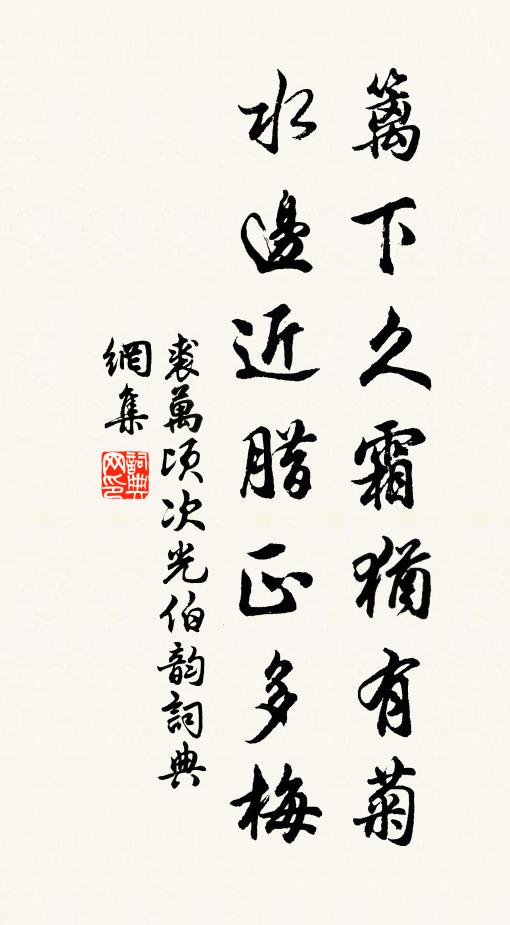 籬下久霜猶有菊
水邊近腊正多梅
裘萬頃次光伯韵詞典
網集
詞典網印